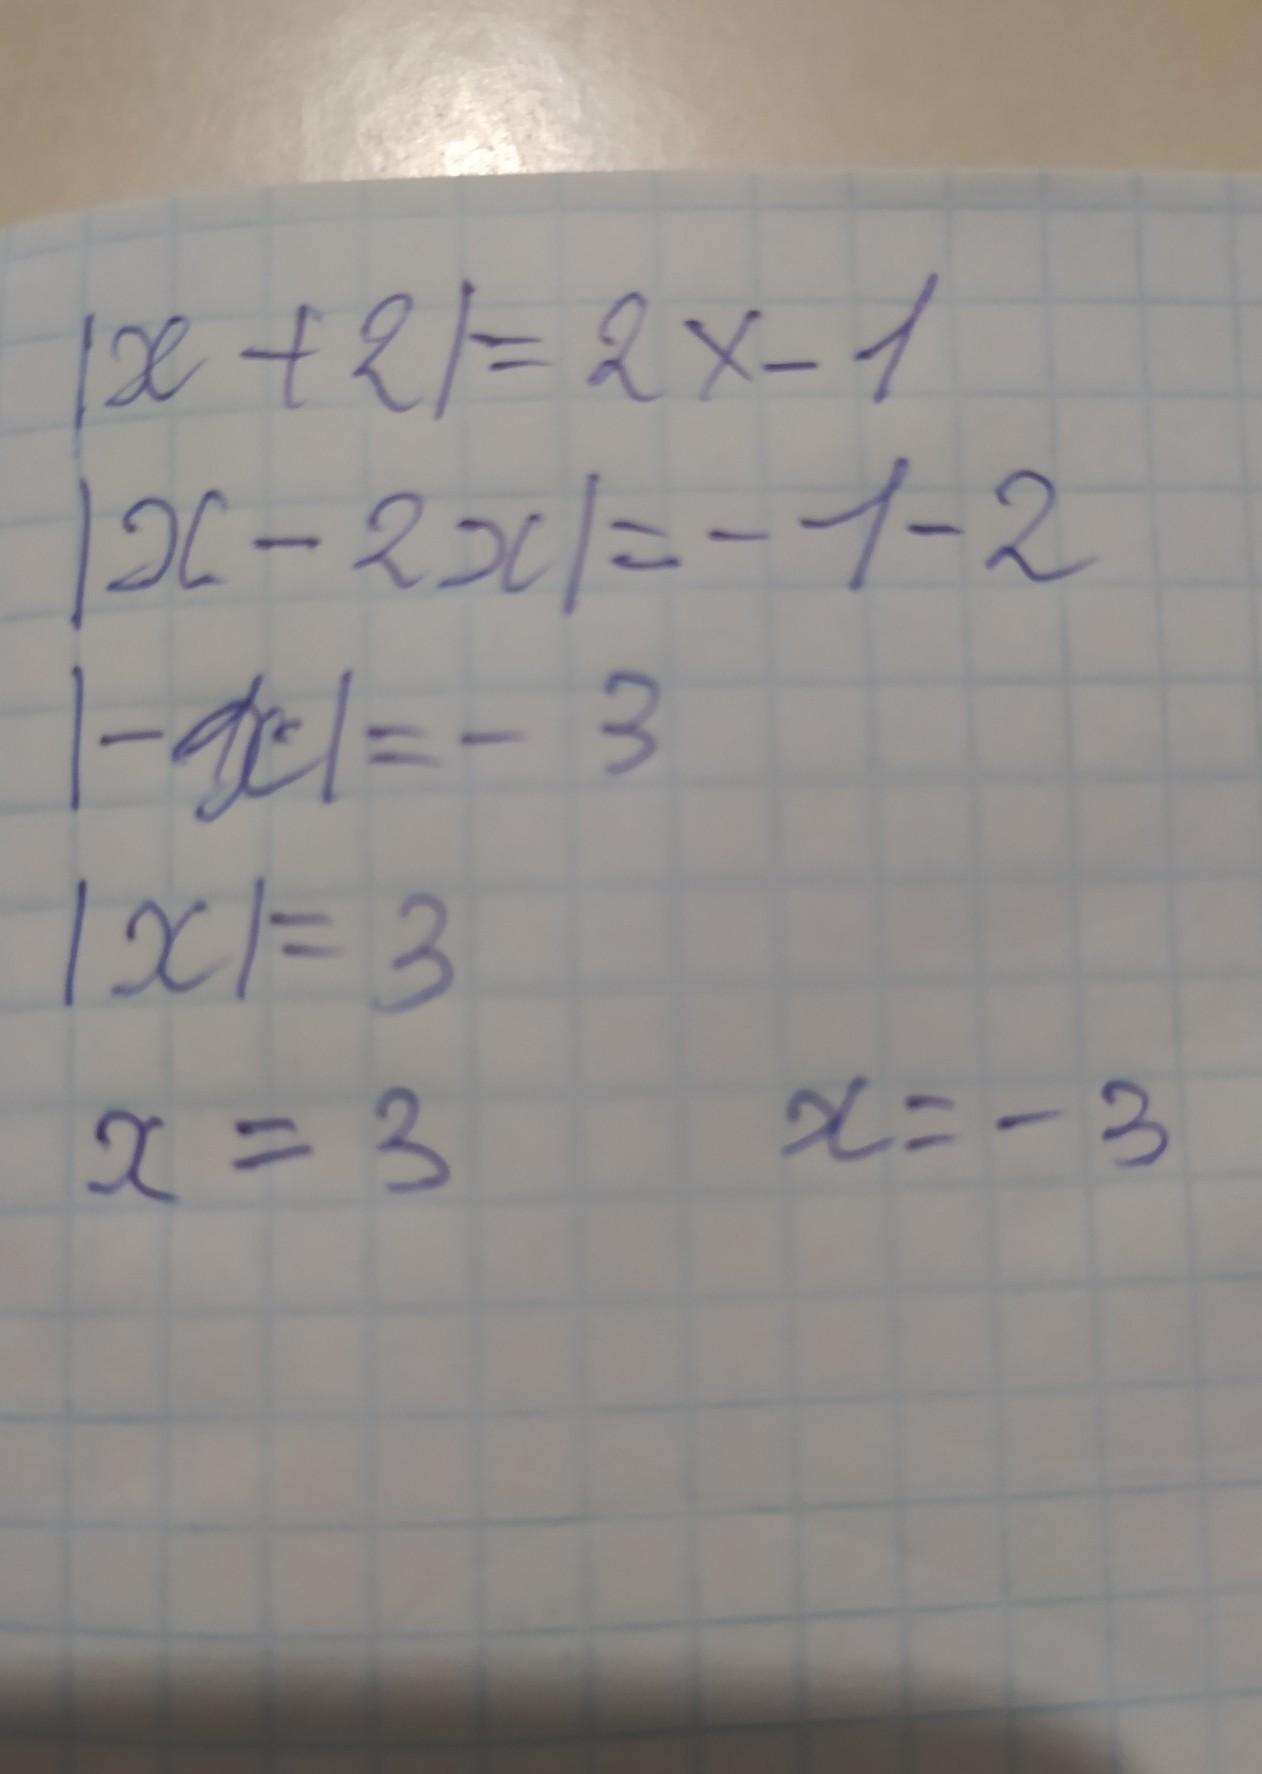 |x + 2| = 2x - 1
|x - 2x| = -1 - 2
|-x| = - 3
|x| = 3
x = 3 x = - 3